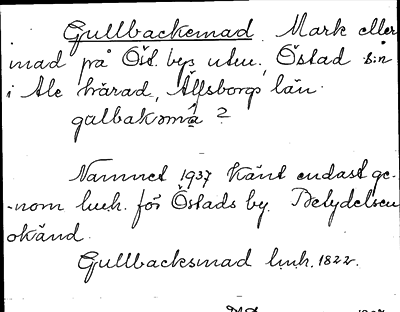 Gullbackemad. Mark eller
mad på Öst. bys utm., Östad s:n
i Ale härad, Älfsborgs län.
galbaksmå ?
Namnet 1937 känt endast ge-
nom luch. för Östads by. Betydelsen
okänd.
Gullbacksmad luch. 1822.